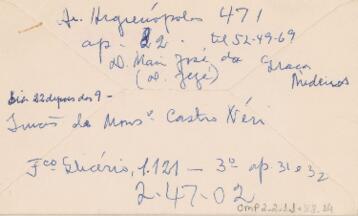 Av. Higienópolis 471
ap. 22. tel 52-49-69
D. Maria José da Graça
(D. Zezé) Medeiros
Dia 22 depois das 9 -
Irmãs de Mons. Castro Néri
Fco Glicério, 1.121 - 3º ap. 31 e 32
2-47-02
CMP2.2.11-